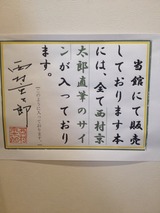 当館にて販売
しております本
には、全て西村京
太郎直筆のサイ
ンが入っており
ます。
西村京太郎